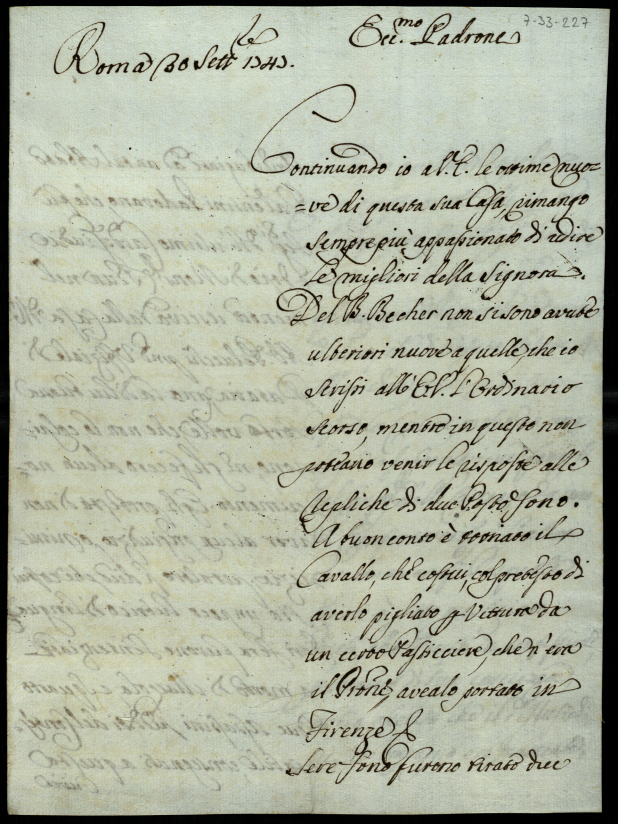 7-33-227
Ecc.mo Padrone
Roma 28 Sette 1741.
Continuando io a V.E. le ottime nuo=
=ve di questa sua Casa, rimango
sempre più appassionato di udire
le migliori della Signora.
Del B. Becher non si sono avute
ulteriori nuove a quelle, che io
scrissi all' l'Ordinario
scorso, mentre in questo non
poteano venir le risposte alle
repliche di due Poste sono.
A buon conto è tornato il
Cavallo, che costui, col pretesto di
averlo pigliato p Vettura da
un certo Pasticciere, che n'era
il Prone, avealo portato in
Firenze
Sere sono furono tirate due